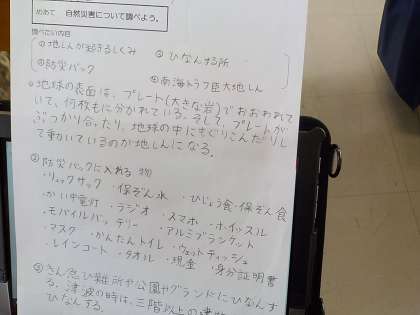 めあて 自然災害について調べよう。
調べたい内容
①地しんが起きるしくみ ③ひなんする所
②防災バック ④南海トラフ巨大地しん
①地球の表面は、プレート(大きな岩)でおおわれて
いて、何枚もに分かれている。そして、プレートが
ぶつかり合ったり、地球の中にもぐりこんだりし
て動いているのが地しんになる。
②防災バックに入れる物
・リュックサック ・保ぞん水 ・ひじょう食・保ぞん食
・かい中電灯 ・ラジオ ・スマホ ・ホイッスル
・モバイルバッテリー ・アルミブランケット
・マスク ・かんたんトイレ ・ウェットティッシュ
・レインコート ・タオル ・現金 ・身分証明書
③きん急ひ難所や公園やグランドにひなんす
る。津波の時は、三階以上の建物
ひなんする。